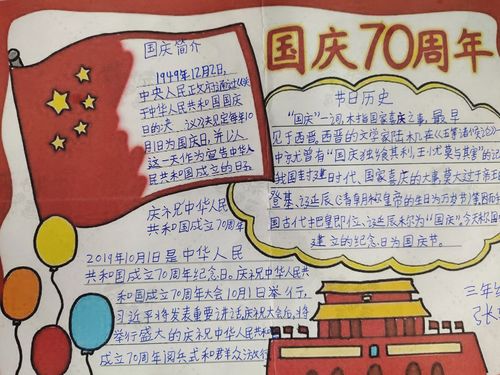 国庆70周年
国庆简介
1949年12月2日,
中央人民政府通过《关
于中华人民共和国国庆
日的决议》规定每年10
月1日为国庆日,并以
这一天作为宣告中华人
民共和国成立的日子
节日历史
"国庆"一词,本指国家喜庆之事,最早
见于西晋。西晋的文学家陆机在《五等诸侯论》
中就曾有"国庆独飨其利,主忧莫与其害"的记
我国封建时代、国家喜庆的大事,莫大过于帝王
登基、诞辰(清
国古代把皇帝即位、诞辰称为"国庆"。今天称国
建立的纪念日为国庆节。
庆祝中华人民
共和国成立70周年
2019年10月1日是中华人民
共和国成立70周年纪念日。庆祝中华人民共
和国成立70周年大会10月1日举行,
习近平将发表重要讲话,庆祝大会后,将
举行盛大的庆祝中华人民共和
成立70周年阅兵式和群众游行
三年
张